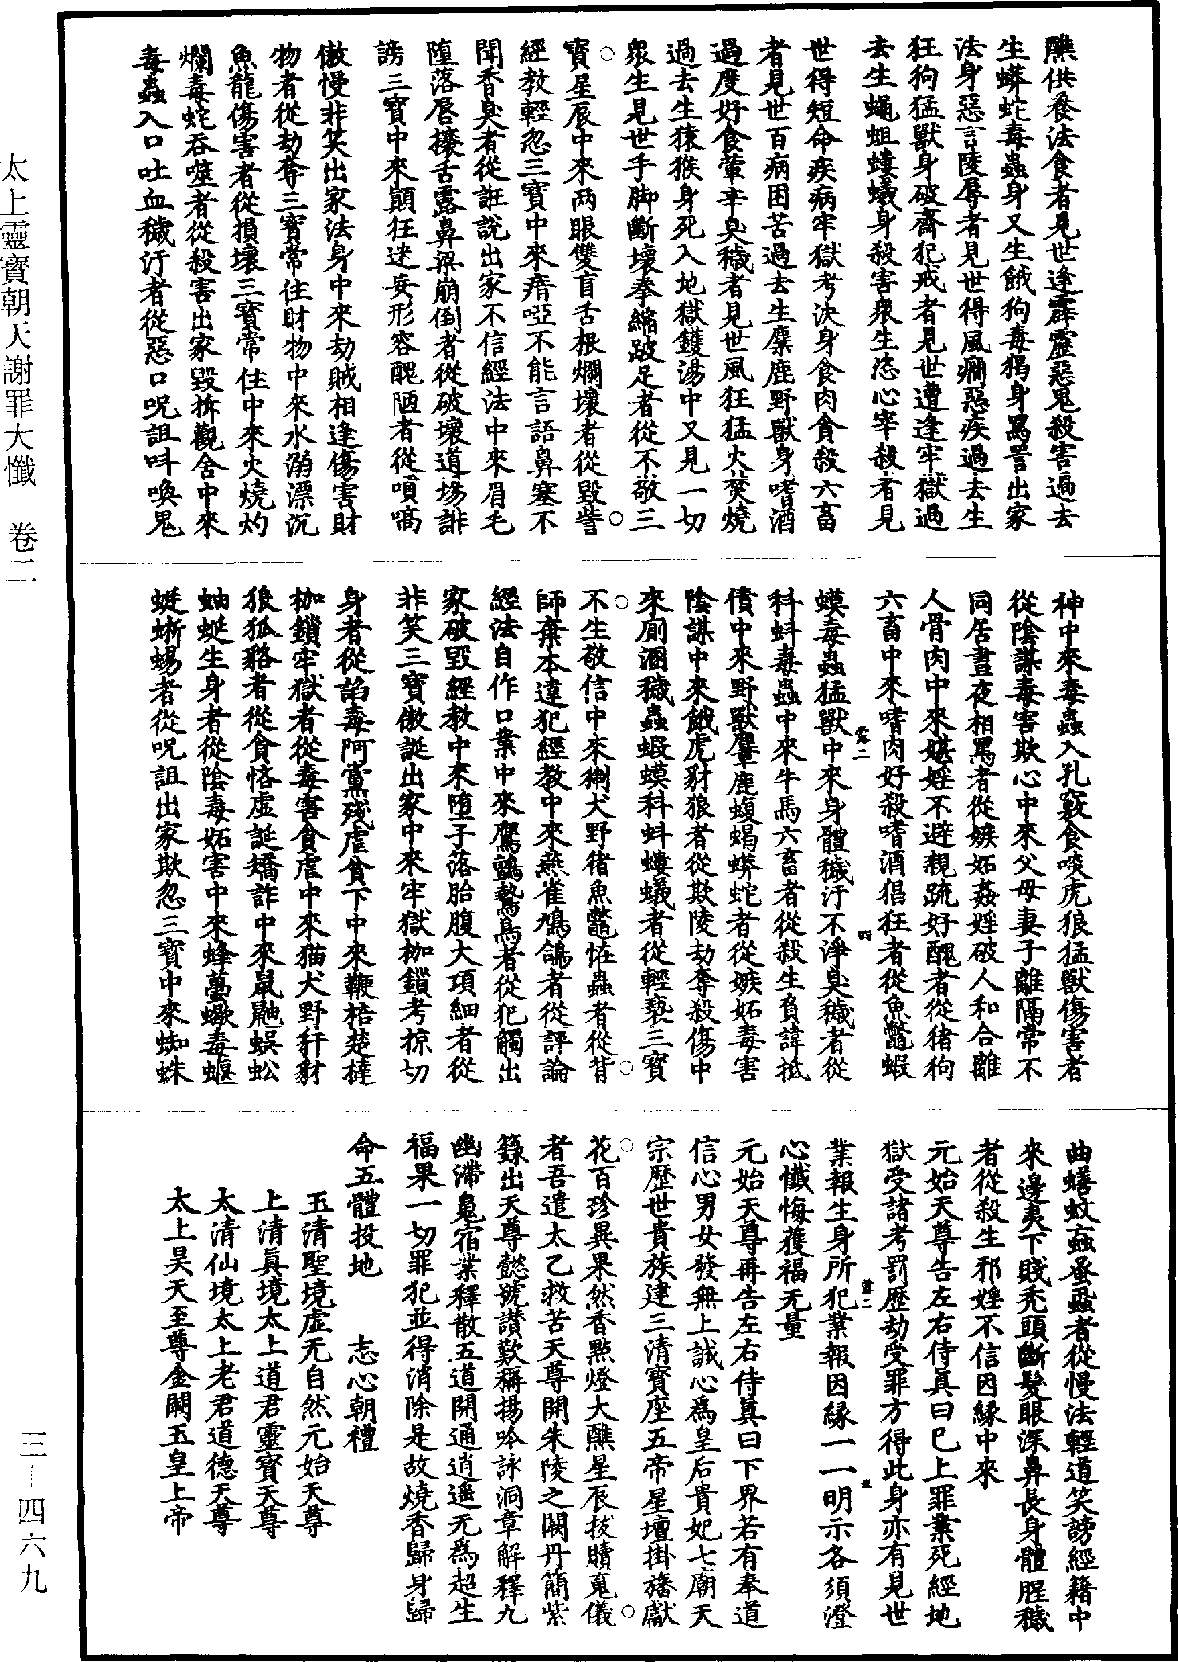 醮供養法食者見世逢霹靂惡鬼殺害過去
生蟒蛇毒蟲身又生餓狗毒獁身罵詈出家
法身惡言陵辱者見世得風癇惡疾過去生
狂狗猛獸身破齋犯戒者見世遭逢牢獄過
去生蠅蛆螻蟻身殺害衆生恣心宰殺者見
世得短命疾病牢獄考決身食肉貪殺六畜
者見世百病困苦過去生麋鹿野獸身嗜酒
過度好食葷辛臭穢者見世風狂猛火焚燒
過去生猿猴身死入地獄鑊湯中又見一切
衆生見世手脚斷壞拳縮跛足者從不敬三
寶星辰中來兩眼雙盲舌根爛壞者從毀訾
經教輕忽三寶中來瘖啞不能言語鼻塞不
聞香臭者從誑說出家不信經法中來眉毛
墮落唇攓舌露鼻梁崩倒者從破壞道場誹
謗三寶中來顛狂迷妄形容醜陋者從嗔嗃
傲慢非笑出家法身中來劫賊相逢傷害財
物者從劫奪三寶常住財物中來水溺漂沉
魚龍傷害者從損壞三寶常住中來火燒灼
爛毒蛇吞噬者從殺害出家毀拆觀舍中來
毒蟲入口吐血穢汙者從惡口呪詛呌喚鬼
神中來毒蟲入孔竅食啖虎狼猛獸傷害者
從陰謀毒害欺心中來父母妻子離隔常不
同居晝夜相罵者從嫉妬姦婬破人和合離
人骨肉中來媅婬不避親疏好醜者從猪狗
六畜中來嗜肉好殺嗜酒猖狂者從魚鼈蝦
蟆毒蟲猛獸中來身體穢汙不淨臭穢者從
科蚪毒蟲中來牛馬六畜者從殺生負諱抵
債中來野獸麞鹿蝮蝎蟒蛇者從嫉妬毒害
陰謀中來餓虎豺狼者從欺陵劫奪殺傷中
來厠溷穢蟲蝦蟆科蚪螻蟻者從輕褻三寶
不生敬信中來猘犬野猪魚鼈恠蟲者從背
師棄本違犯經教中來燕雀鳩鴿者從評論
經法自作口業中來鷹鸇鷙鳥者從犯觸出
家破毀經教中來墮子落胎腹大項細者從
非笑三寶傲誕出家中來牢獄枷鎖考掠切
身者從諂毒阿黨殘虐貪下中來鞭棓楚撻
枷鎖牢獄者從毒害貪虐中來猫犬野豻豺
狼狐貉者從貪悋虛誕矯詐中來鼠鼬蜈蚣
蚰蜒生身者從陰毒妬害中來蜂蠆蠍毒蝘
蜓蜥蜴者從呪詛出家欺忽三寶中來蜘蛛
曲蟮蚊䖟蚤蝨者從慢法輕道笑謗經籍中
來邊夷下賤禿頭斷髮眼深鼻長身體腥穢
者從殺生邪婬不信因緣中來
元始天尊告左右侍真曰已上罪業死經地
獄受諸考罰歷劫受罪方得此身亦有見世
業報生身所犯業報因緣一一明示各須澄
心懺悔獲福无量
元始天尊再告左右侍真曰下界若有奉道
信心男女發無上誠心爲皇后貴妃七廟天
宗歷世貴族建三清寶座五帝星壇掛旛獻
花百珍異果然香點燈大醮星辰拔贖䰟儀
者吾遣太乙救苦天尊開朱陵之闕丹簡紫
籙出天尊懿號讚歎稱揚吟詠洞章解釋九
幽滯䰟宿業釋散五道開通逍遥无爲超生
福果一切罪犯並得消除是故燒香歸身歸
命五體投地　志心朝禮
玉清聖境虛无自然元始天尊
上清眞境太上道君靈寶天尊
太清仙境太上老君道德天尊
太上昊天至尊金闕玉皇上帝
太上靈寶朝天謝罪大懺　卷二
三—四六九